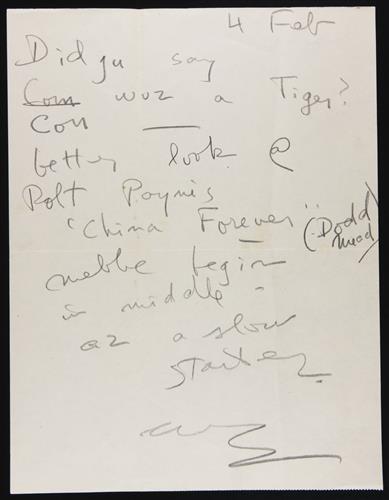 4 Feb
Did ju say
wuz a Tiger?
Con
better look @
Robt Payne's
"China Forever" (Dodd
Mead)
mebbe begin
in middle -
az a slow
starter.